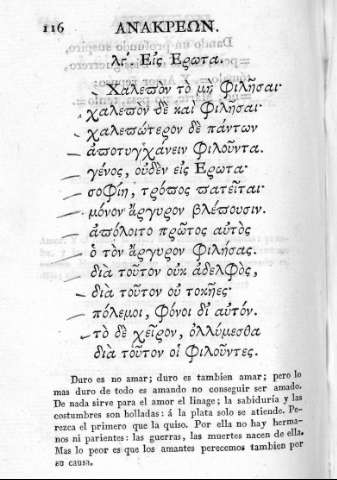 116 ΑΝΑΚΡΕΩΝ.
λςʹ. Εἰς Ερωτα.
Χαλεπὸν τὸ μὴ φιλῆσαι·
χαλεπὸν δὲ καὶ φιλῆσαι·
χαλεπώτερον δὲ πάντων
ἀποτυγχάνειν φιλοῦντα.
γένος, οὐδὲν εἰς Ερωτα·
σοφίη, τρόπος πατεῖται·
μόνον ἄργυρον βλέπουσιν.
ἀπόλοιτο πρῶτος αὐτὸς
ὁ τὸν ἄργυρον φιλήσας.
διὰ τοῦτον οὐκ ἀδελφὸς,
διὰ τοῦτον οὐ τοκῆες·
πόλεμοι, φόνοι δι᾽ αὐτόν.
τὸ δὲ χεῖρον, ὀλλύμεσθα
διὰ τοῦτον οἱ φιλοῦντες.
Duro es no amar; duro es tambien amar; pero lo
mas duro de todo es amando no conseguir ser amado.
De nada sirve para el amor el linage; la sabiduría y las
costumbres son holladas: á la plata solo se atiende. Pe-
rezca el primero que la quiso. Por ella no hay herma-
nos ni parientes: las guerras, las muertes nacen de ella.
Mas lo peor es que los amantes perecemos tambien por
su causa.